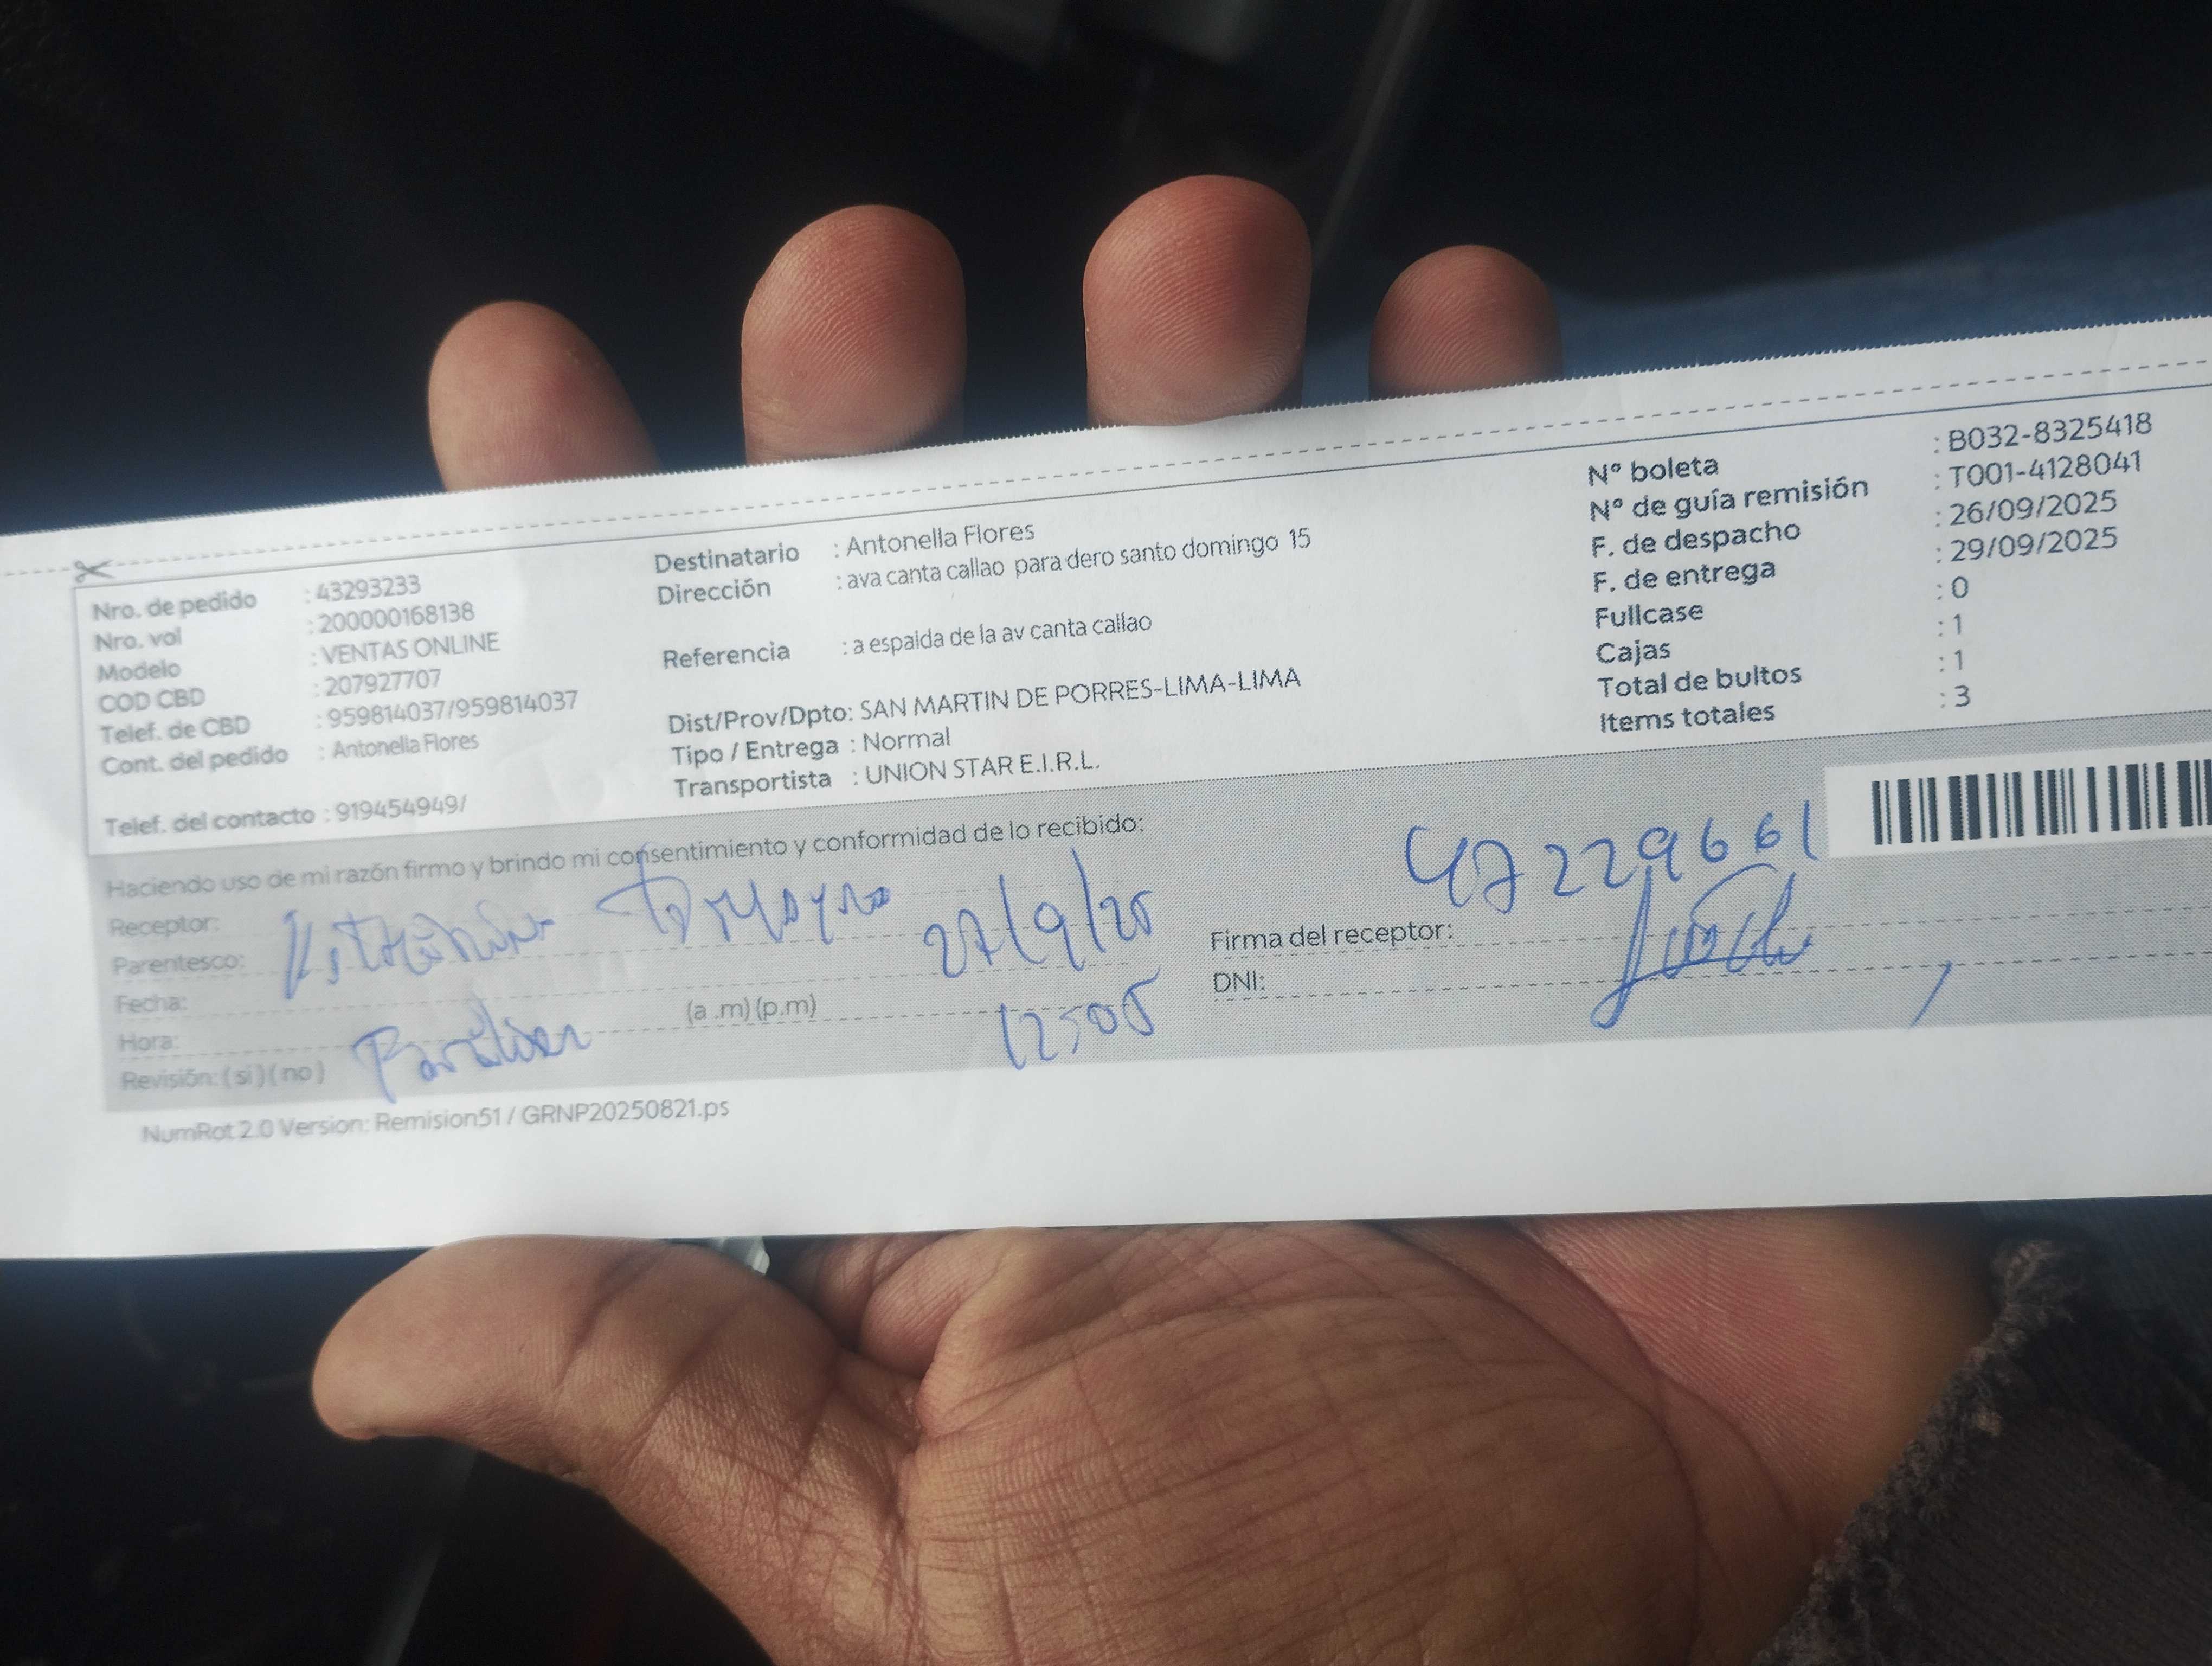 Nro. de pedido : 43293233
Nro. vol : 200000168138
Modelo : VENTAS ONLINE
COD CBD : 207927707
Telef. de CBD : 959814037/959814037
Cont. del pedido : Antonella Flores
Telef. del contacto : 919454949/
Destinatario : Antonella Flores
Dirección : ava canta callao para dero santo domingo 15
Referencia : a espalda de la av canta callao
Dist/Prov/Dpto: SAN MARTIN DE PORRES-LIMA-LIMA
Tipo / Entrega : Normal
Transportista : UNION STAR E.I.R.L.
Nº boleta : B032-8325418
Nº de guía remisión : T001-4128041
F. de despacho : 26/09/2025
F. de entrega : 29/09/2025
Fullcase : 0
Cajas : 1
Total de bultos : 1
Items totales : 3
Haciendo uso de mi razón firmo y brindo mi consentimiento y conformidad de lo recibido:
Receptor:
Parentesco:
Fecha: 27/9/25
Hora: (a .m) (p.m)
Revisión: ( si ) ( no )
47229661
Firma del receptor:
DNI:
NumRot 2.0 Version: Remision51 / GRNP20250821.ps